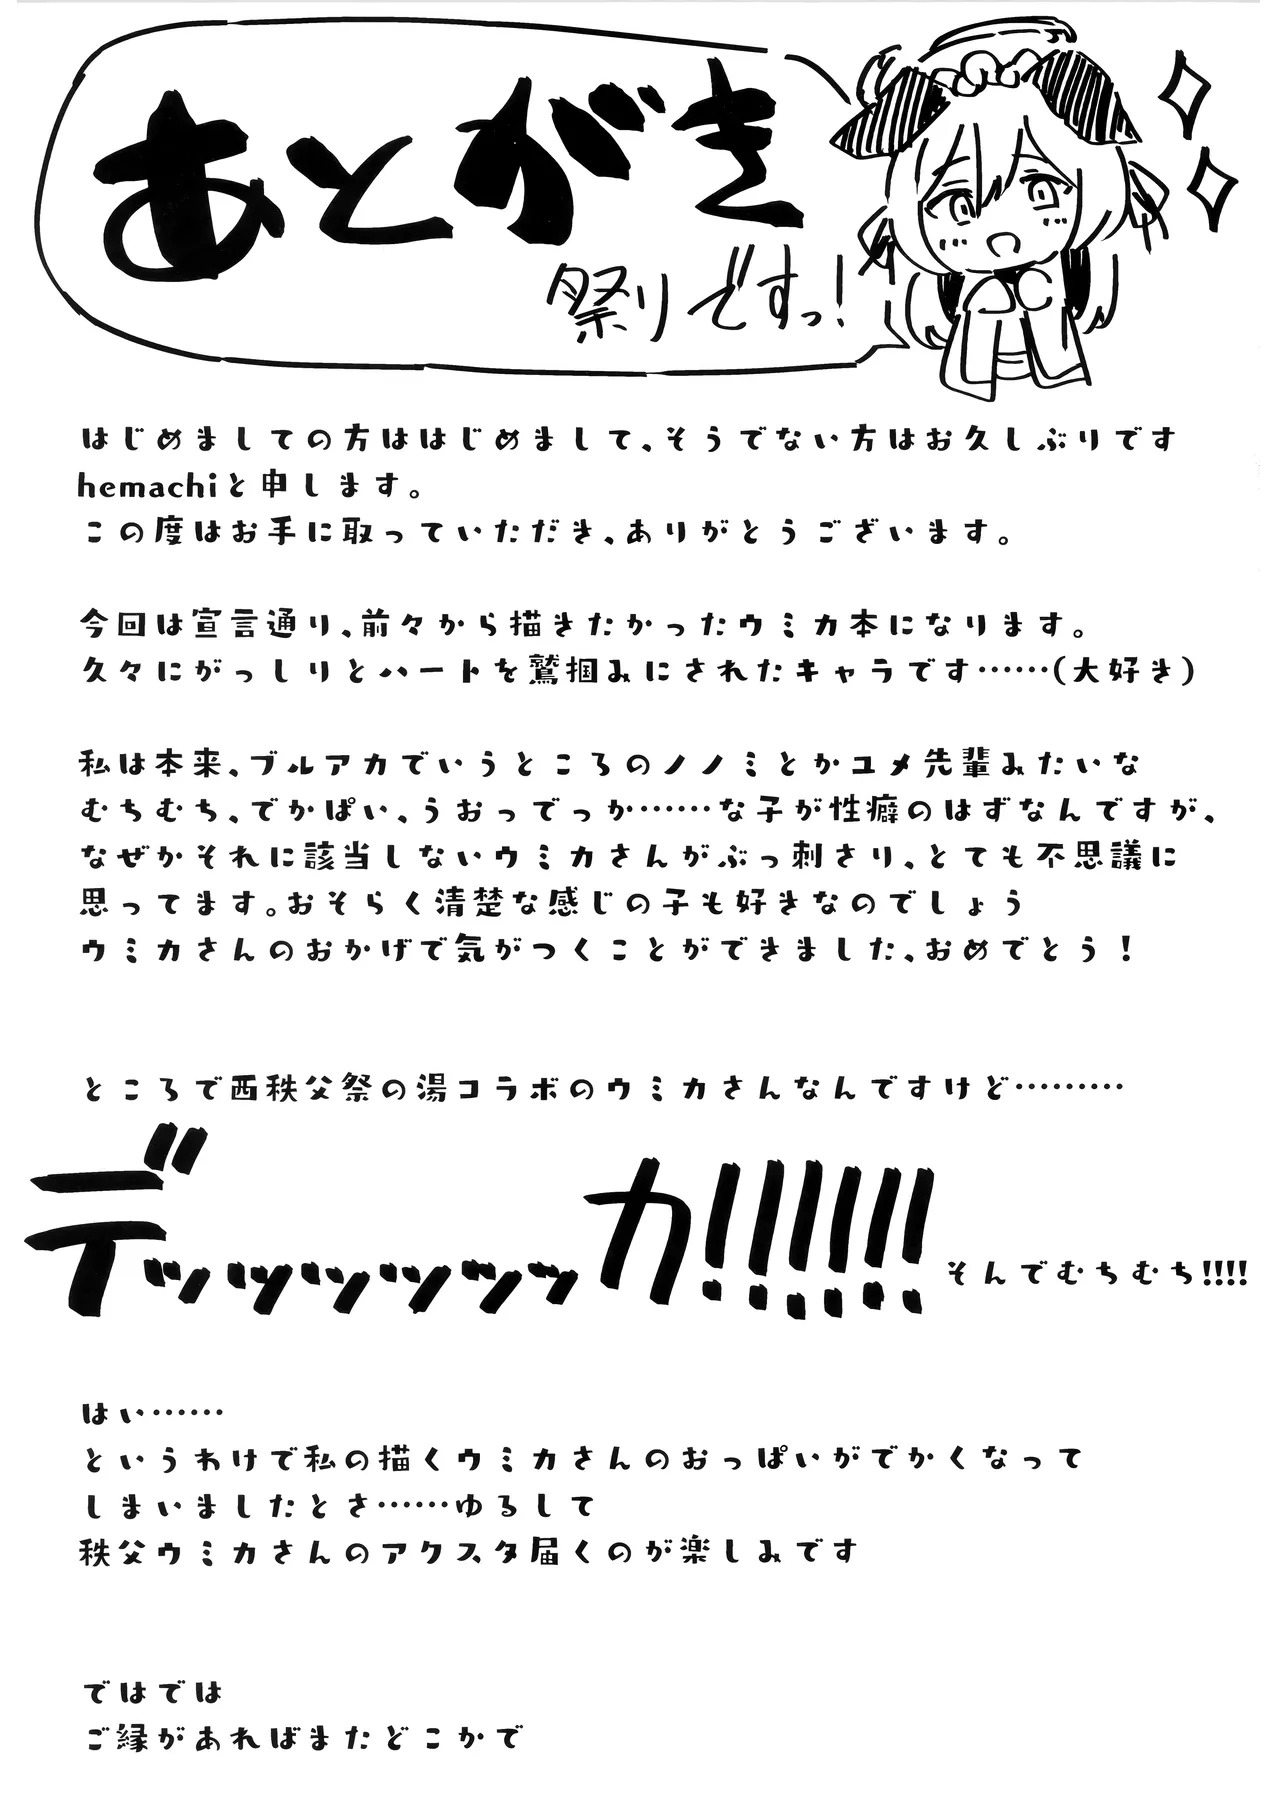 あとがき
祭りですっ!
はじめましての方ははじめまして、そうでない方はお久しぶりです
hemachiと申します。
この度はお手に取っていただき、ありがとうございます。
今回は宣言通り、前々から描きたかったウミカ本になります。
久々にがっしりとハートを鷲掴みにされたキャラです……(大好き)
私は本来、ブルアカでいうところのノノミとかユメ先輩みたいな
むちむち、でかぱい、うおっでっか……な子が性癖のはずなんですが、
なぜかそれに該当しないウミカさんがぶっ刺さり、とても不思議に
思ってます。おそらく清楚な感じの子も好きなのでしょう
ウミカさんのおかげで気がつくことができました、おめでとう!
ところで西秩父祭の湯コラボのウミカさんなんですけど………
デッッッッッッカ!!!!!! そんでむちむち!!!!
はい……
というわけで私の描くウミカさんのおっぱいがでかくなって
しまいましたとさ……ゆるして
秩父ウミカさんのアクスタ届くのが楽しみです
ではでは
ご縁があればまたどこかで